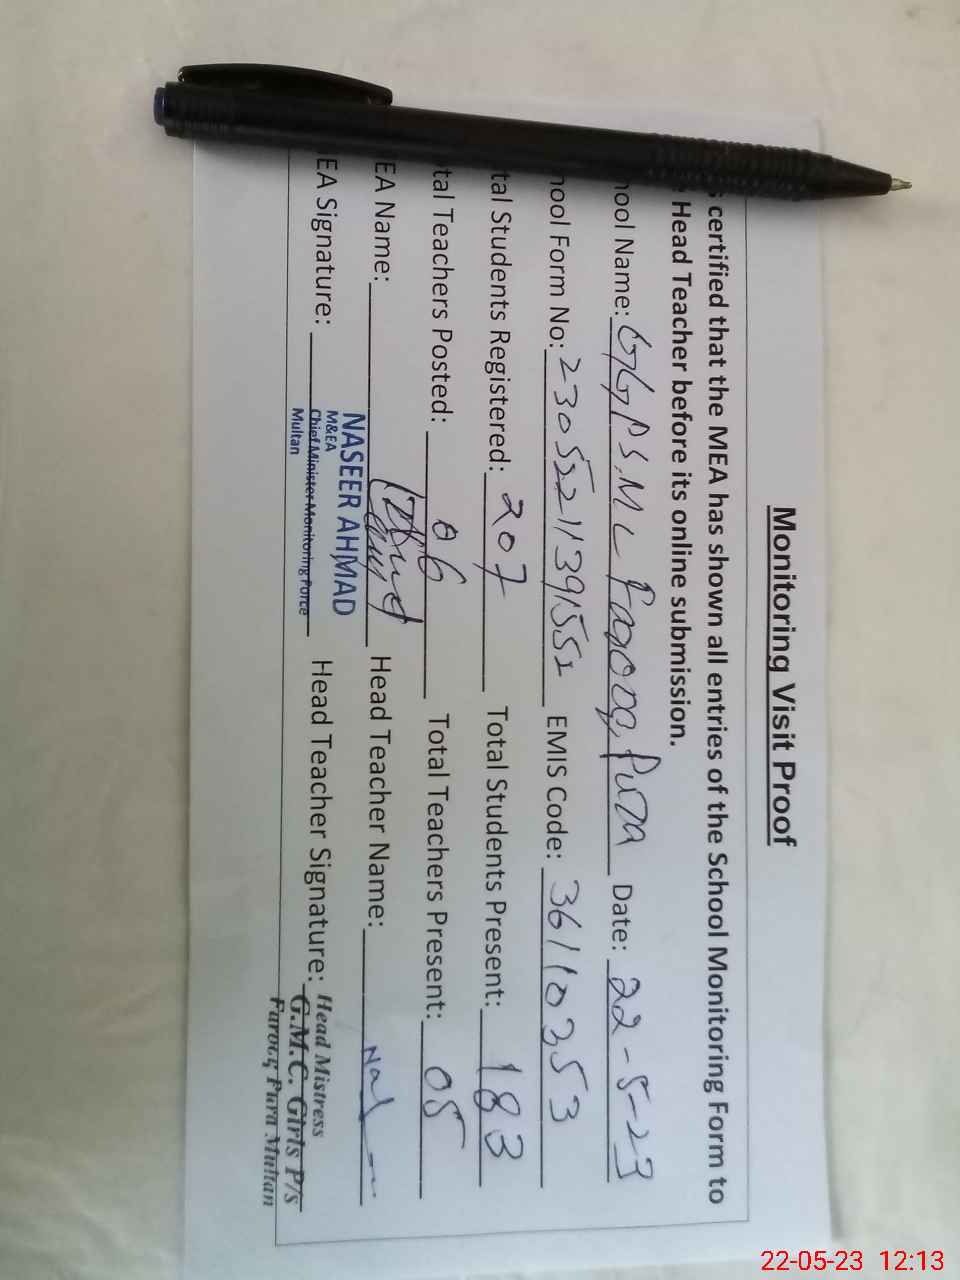 Monitoring Visit Proof
certified that the MEA has shown all entries of the School Monitoring Form to
Head Teacher before its online submission.
hool Name: GGPS. MC Farooq Pura Date: 22-5-23
hool Form No: EMIS Code: 36110353
tal Students Registered: 207 Total Students Present: 183
tal Teachers Posted: 06 Total Teachers Present: 05
EA Name: Head Teacher Name:
NASEER AHMAD
M&EA
Chief Minister Monitoring Force
Multan
EA Signature: Head Teacher Signature:
Head Mistress
G.M.C. Girls P/s
Farooq Pura Multan
22-05-23 12:13